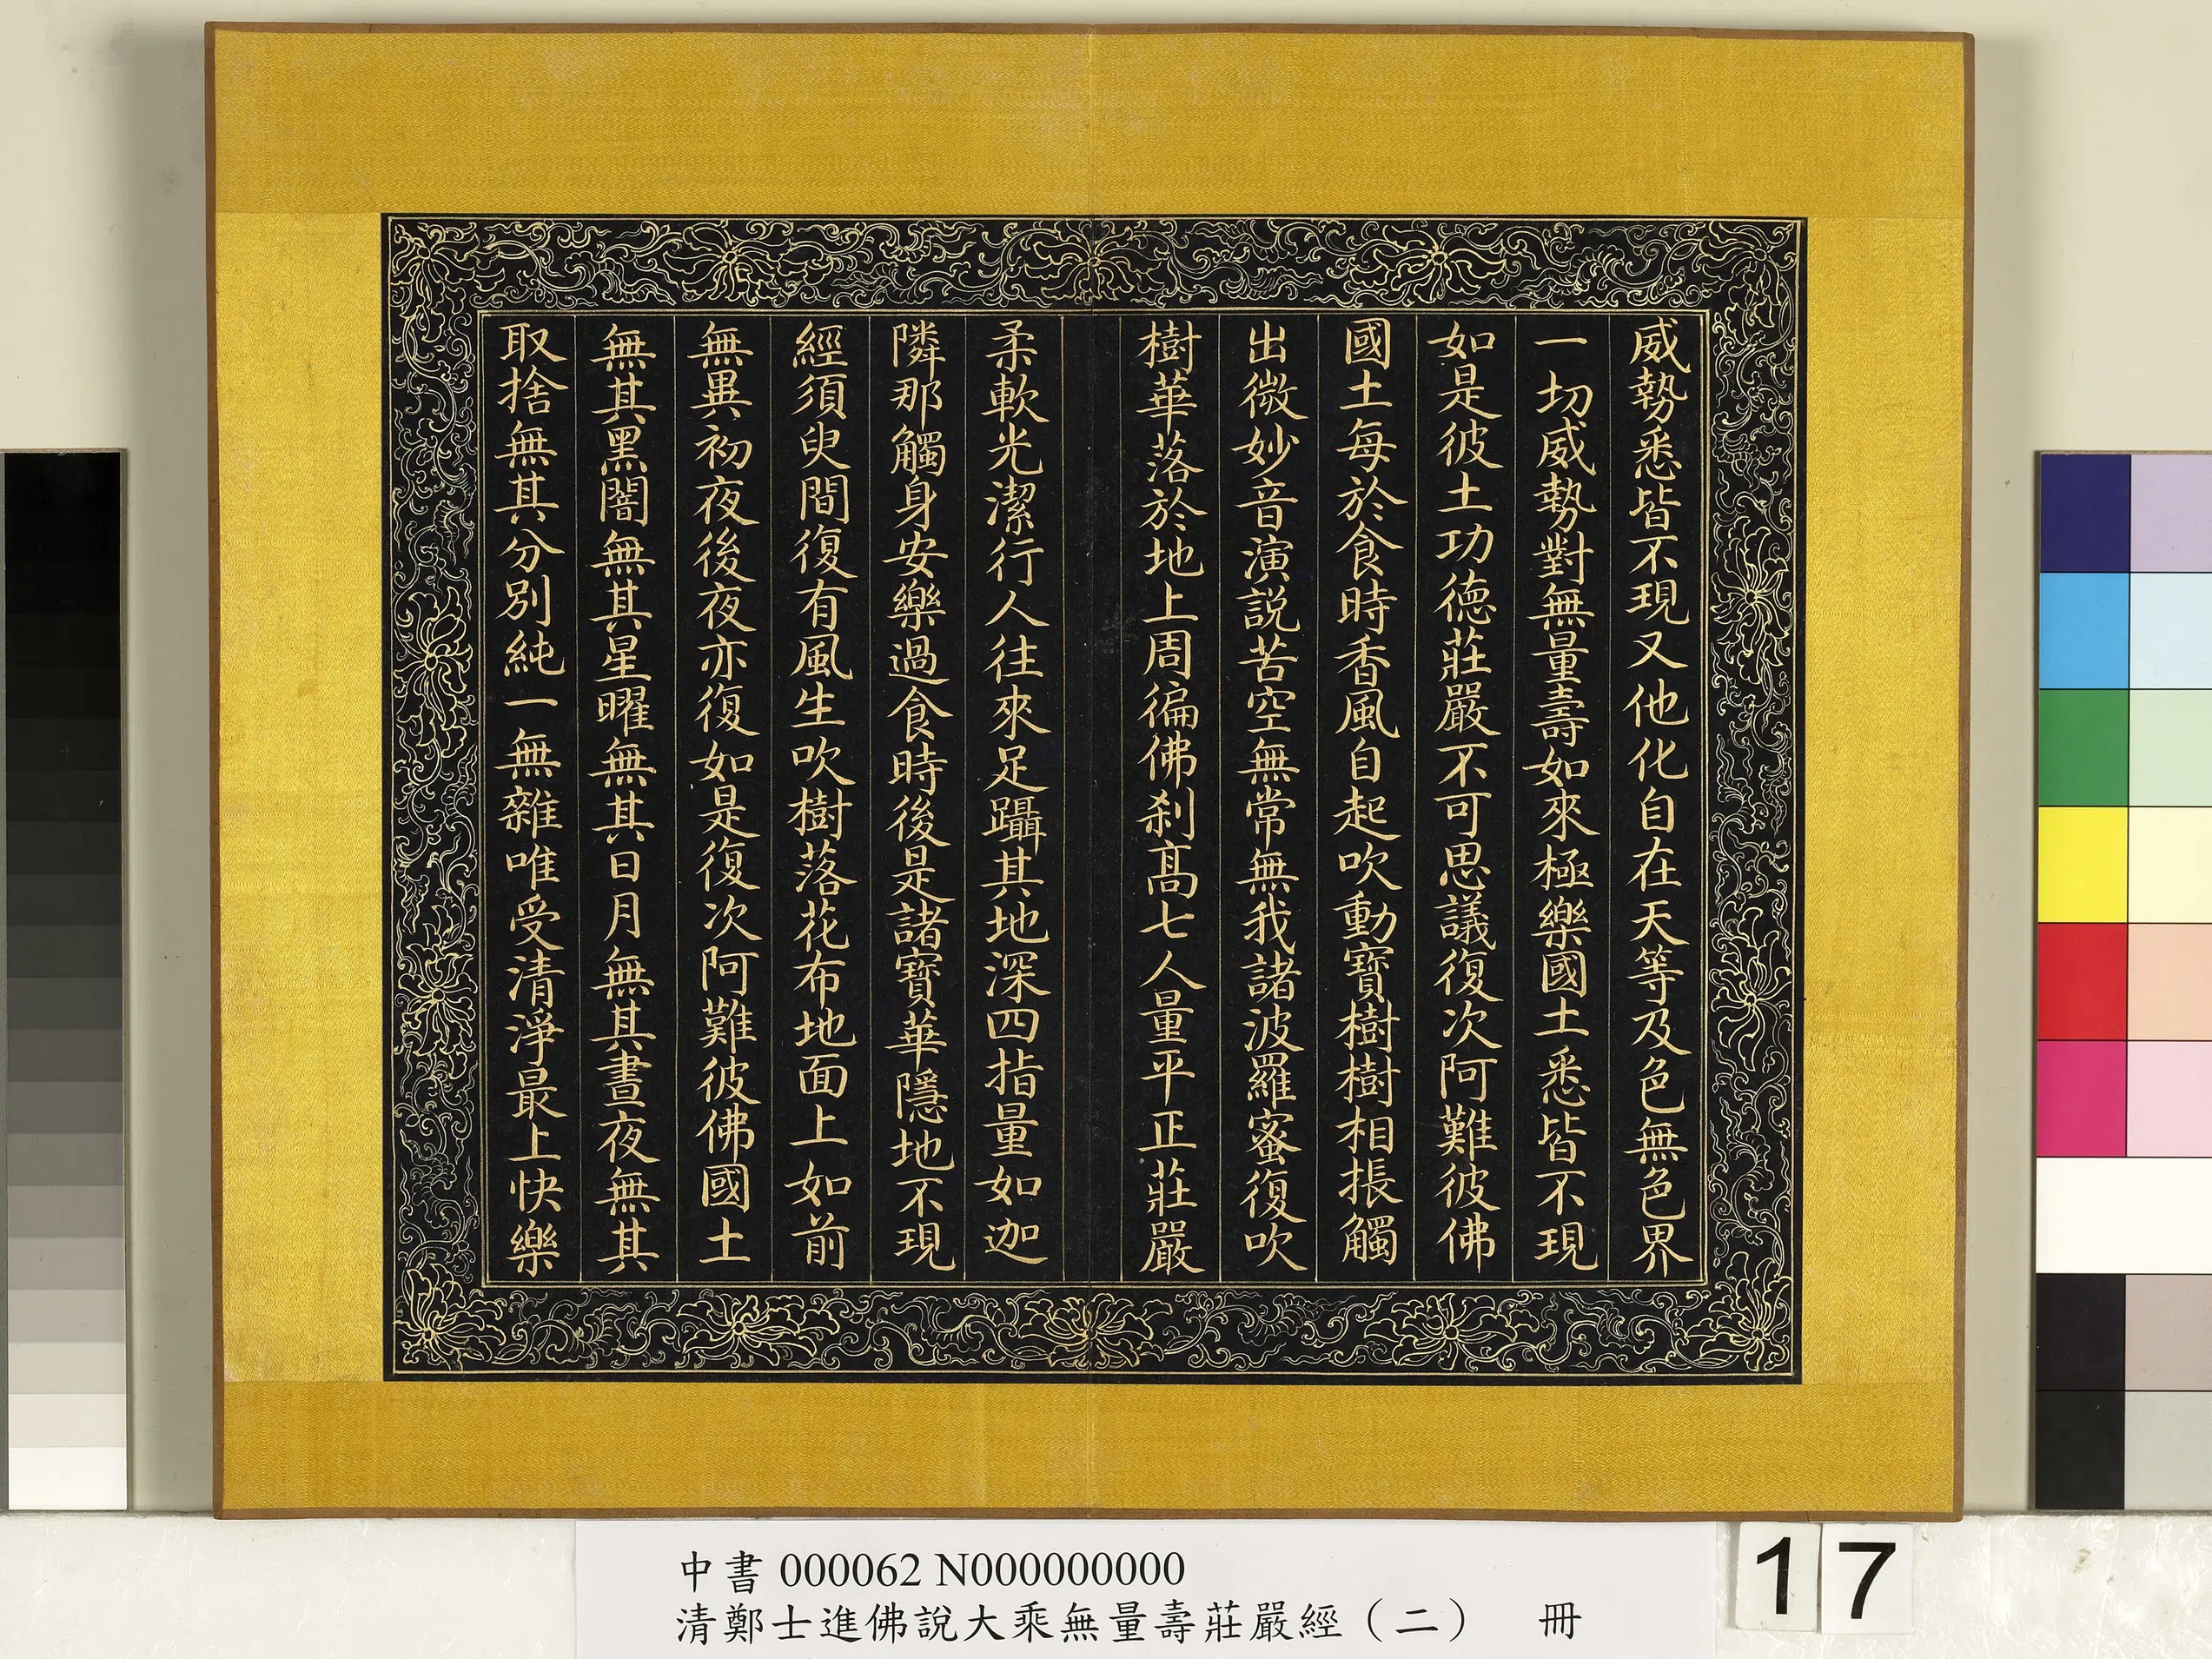 威勢悉皆不現又他化自在天等及色無色界
一切威勢對無量壽如來極樂國土悉皆不現
如是彼土功德莊嚴不可思議復次阿難彼佛
國土每於食時香風自起吹動寶樹樹相掁觸
出微妙音演說苦空無常無我諸波羅蜜復吹
樹華落於地上周徧佛刹高七人量平正莊嚴
柔軟光潔行人往來足躡其地深四指量如迦
隣那觸身安樂過食時後是諸寶華隱地不現
經須臾間復有風生吹樹落花布地面上如前
無異初夜後夜亦復如是復次阿難彼佛國土
無其黑闇無其星曜無其日月無其晝夜無其
取捨無其分別純一無雜唯受清淨最上快樂
中書 000062 N000000000
清鄭士進佛說大乘無量壽莊嚴經（二） 冊
17